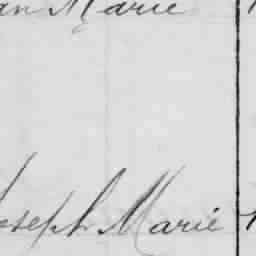 an Marie
Joseph Marie